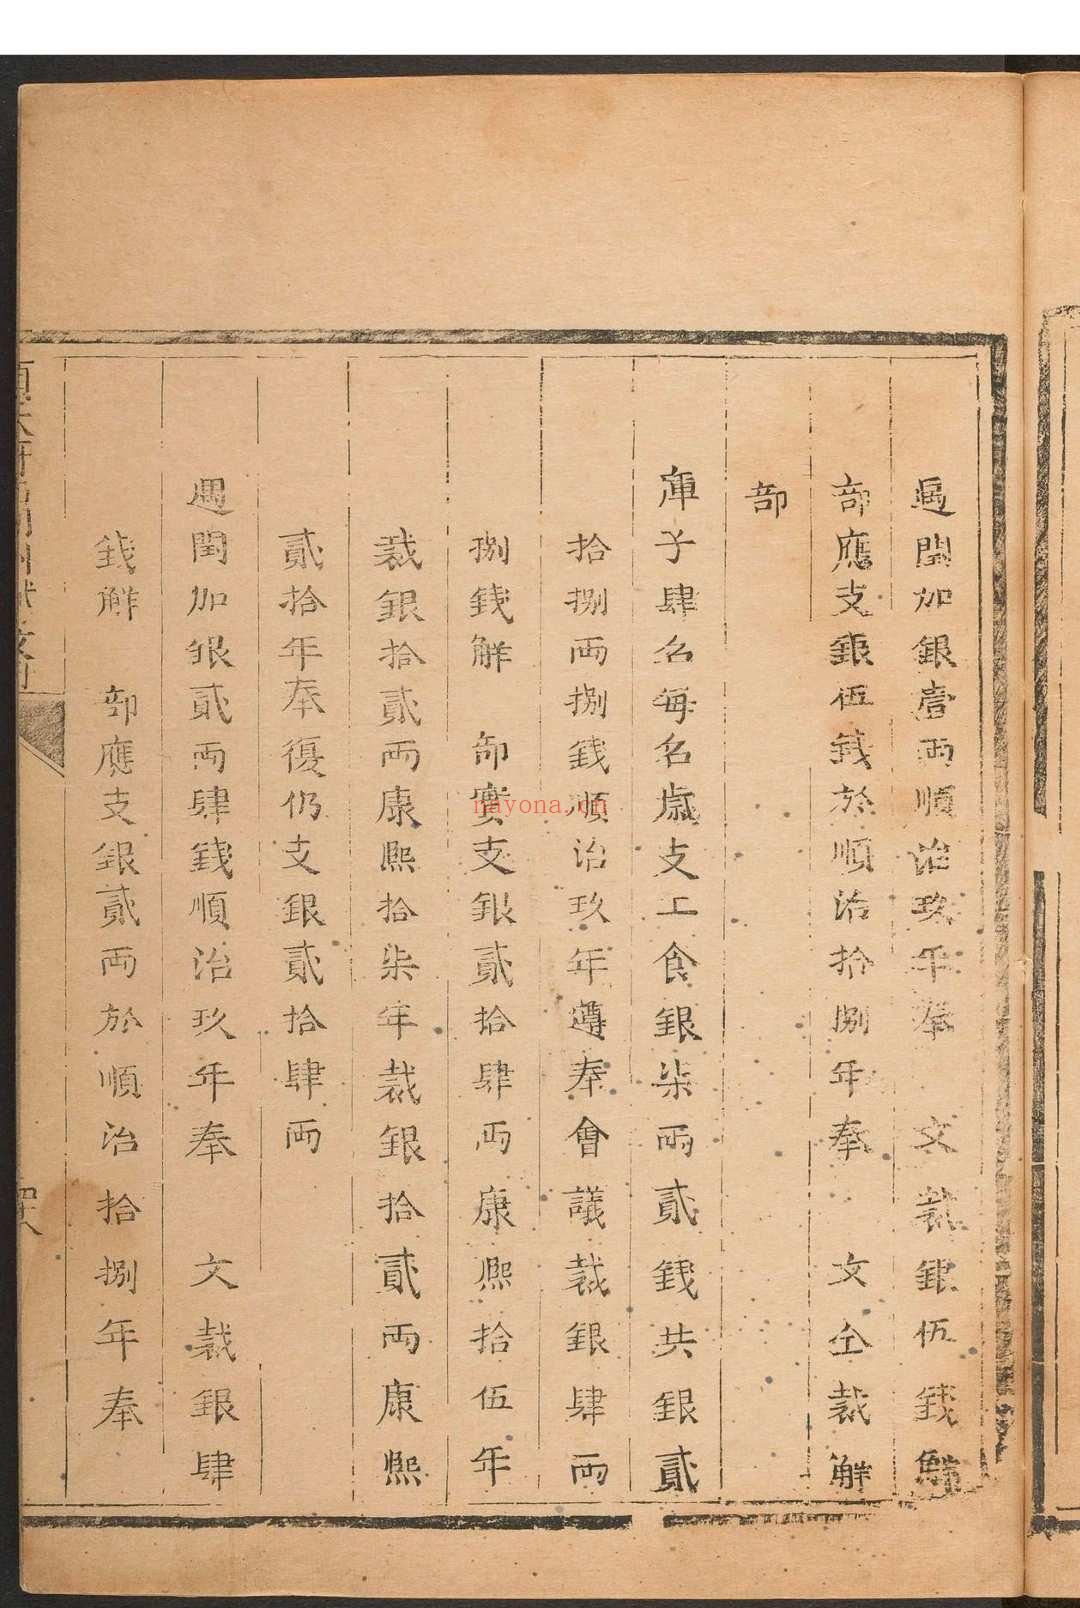 遇閏加銀壹兩順治玖年奉　文裁銀伍錢解
部應支銀伍錢於順治拾捌年奉　文全裁解
部
庫子肆名每名歲支工食銀柒兩貳錢共銀貳
拾捌兩捌錢順治玖年遵奉會議裁銀肆兩
捌錢解　部實支銀貳拾肆兩康熙拾伍年
裁銀拾貳兩康熙拾柒年裁銀拾貳兩康熙
貳拾年奉復仍支銀貳拾肆兩
遇閏加銀貳兩肆錢順治玖年奉　文裁銀肆
錢解　部應支銀貳兩於順治拾捌年奉
nayona.cn